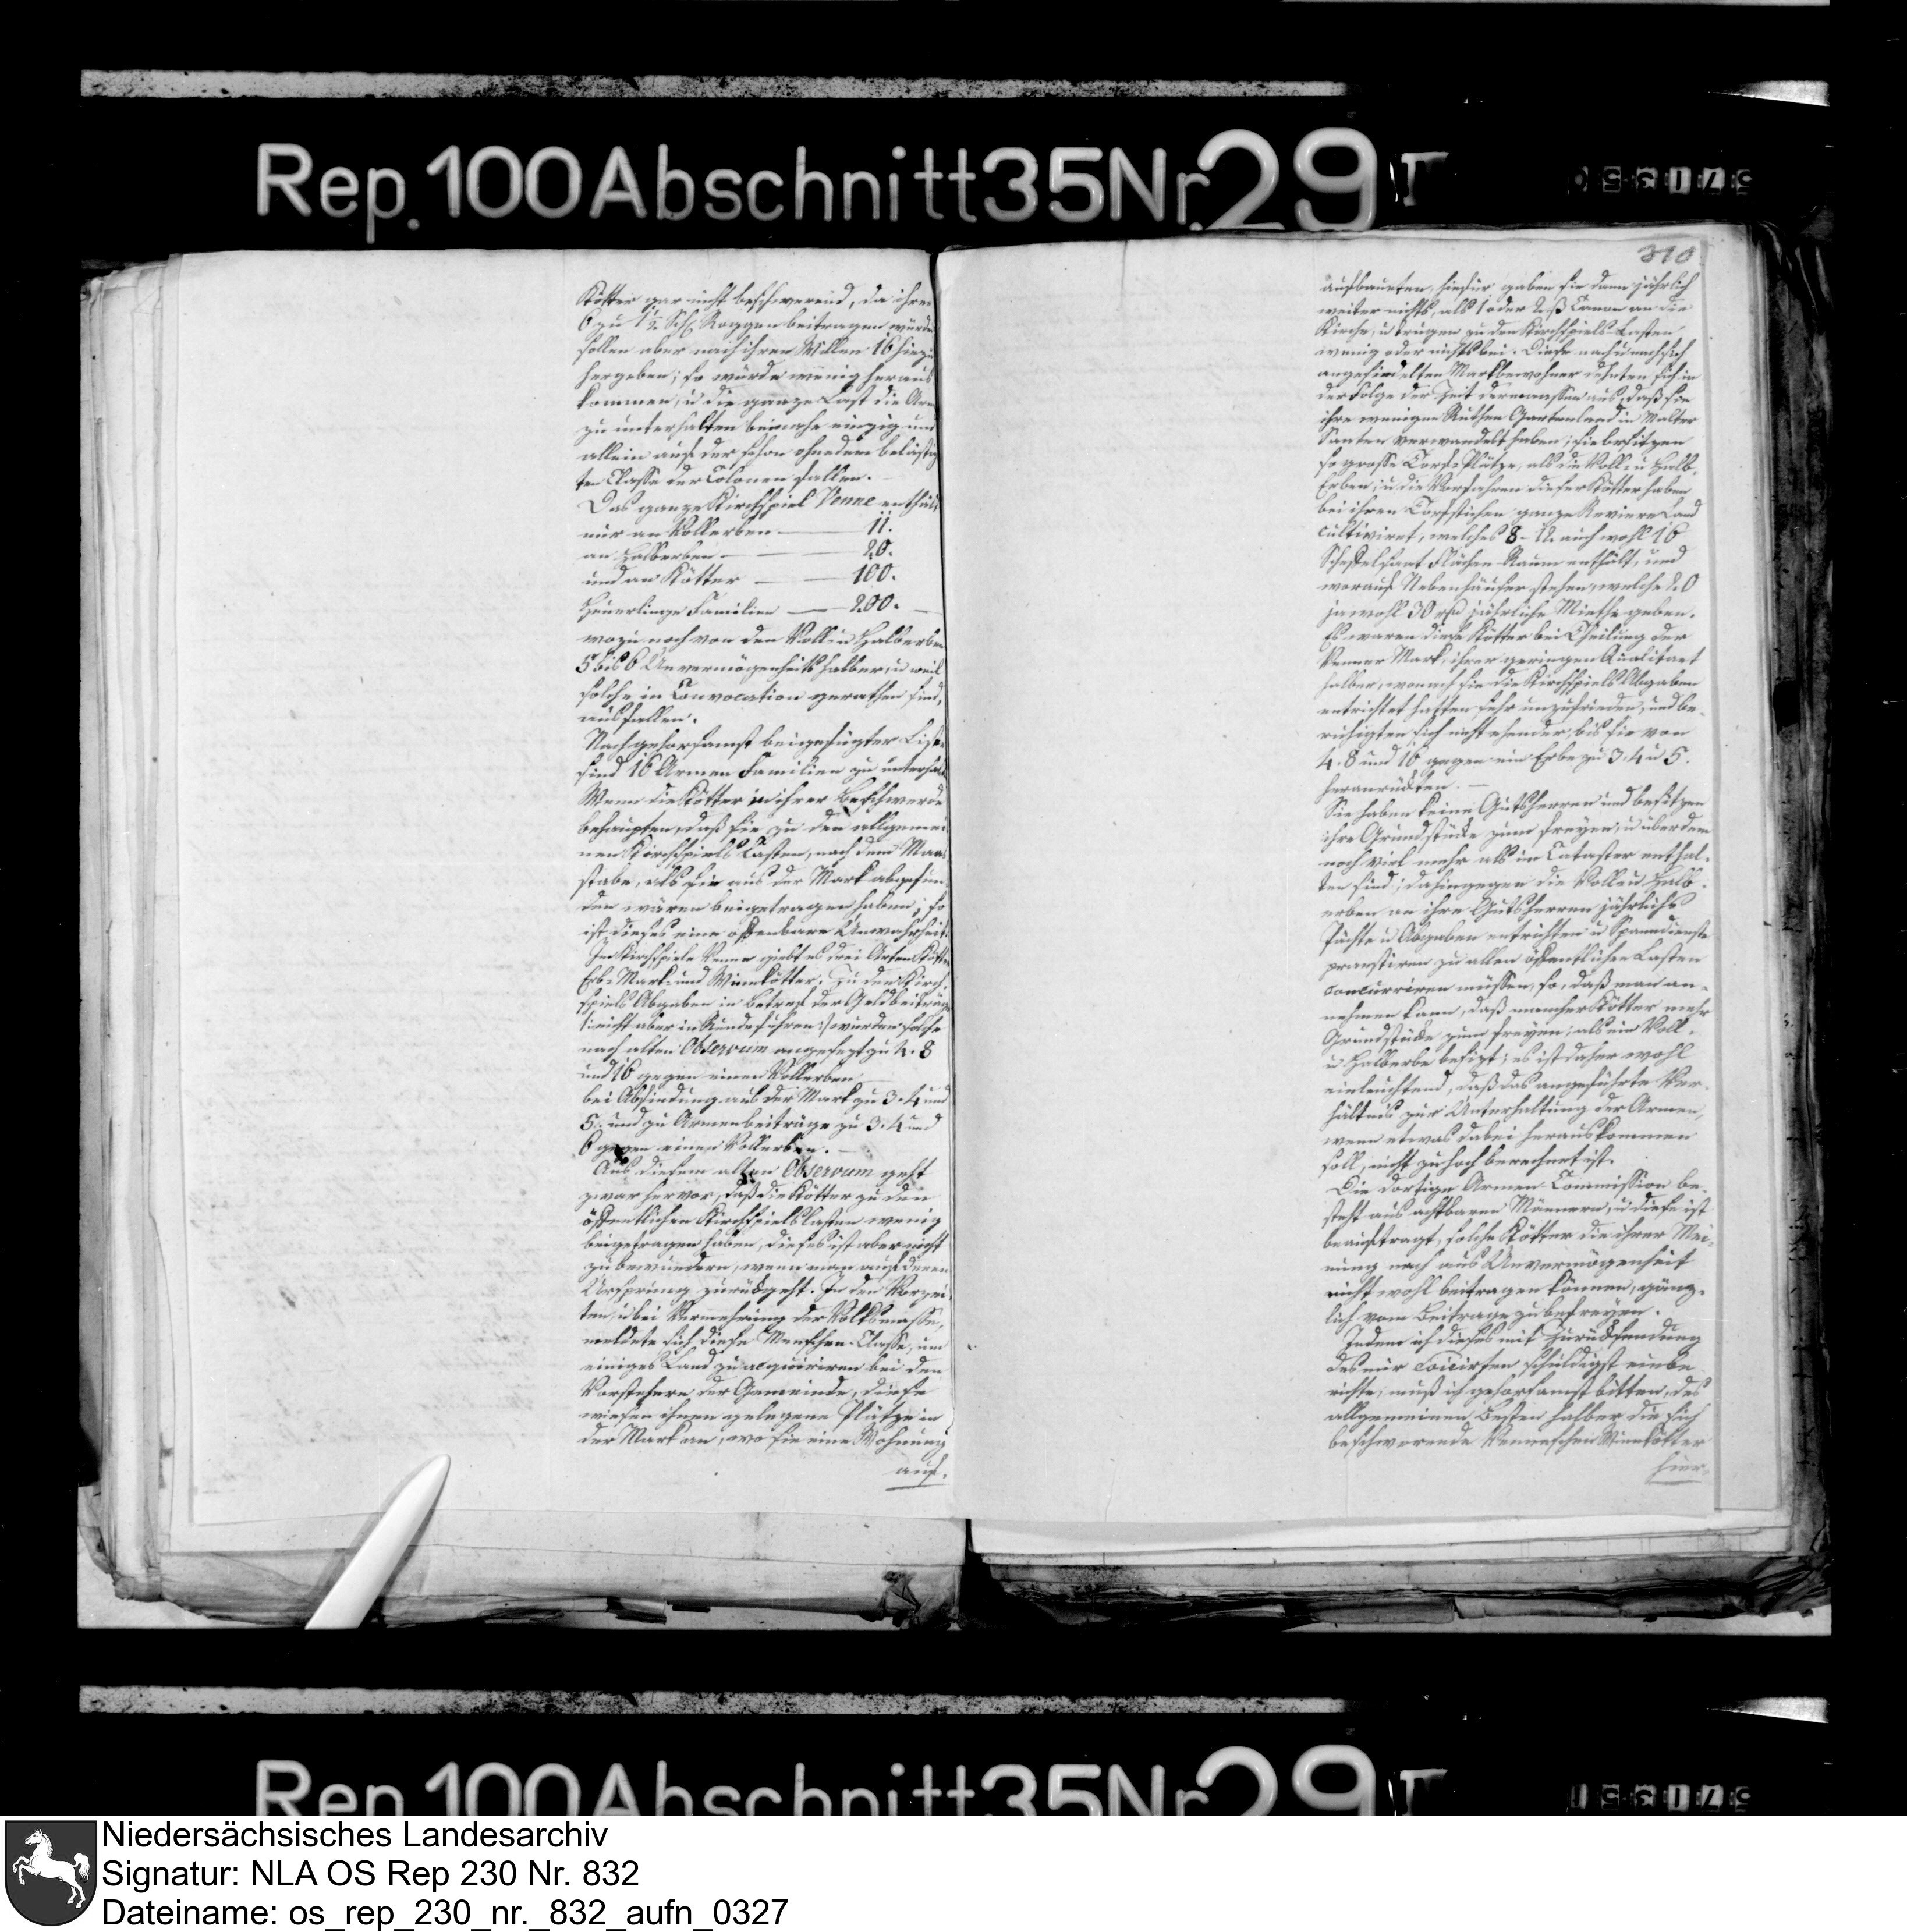 Rep. 100 Abschnitt 35 Nr. 29 I
Kötter gar nicht beschwerend, da ihrer
6 zu 1½ Schfl Roggen beitragen würde
sollen aber nach ihren Willen 16 hiezu
hergeben; so würde wenig heraus
kommen, u die ganze Last die Arm
zu unterhalten beinahe einzig und
allein auf der schon ohnedem belästig
ten Classe der Colonen fallen.
Das ganze Kirchspiel Venne enthält
nur an Vollerben — 11.
an Halberben — 20.
und an Kötter — 100.
Heuerlinge Familien — 200. —
wozu noch von den Voll u Halberben
5 bis 6 Unvermögenheits halber u weil
solche in Convocation gerathen sind,
ausfallen.
Nach gehorsamst beigefügter Liste
sind 16 Armen Familien zu unterhalt
Wenn die Kötter in ihrer Beschwerde
behaupten, daß sie zu den allgemei
nen Kirchspiels Lasten, nach dem Maas
stabe, als sie aus der Mark abgefun
den wären beigetragen haben; so
ist dieses eine offenbare Unwahrheit.
Im Kirchspiele Venne giebt es drei Arten Kötter
Erb- Mark- und Winnkötter. Zu den Kirch-
spiels Abgaben in Betref der Geldbeiträge
/: nicht aber in Runde fuhren :/ wurden solche
nach alten Observum angesezt zu 4. 8
und 16 gegen einen Vollerben
bei Abfindung aus der Mark zu 3. 4 und
5. und zu Armenbeiträge zu 3. 4 und
6 gegen einen Vollerben. —
Aus diesem alten Observum geht
zwar hervor, daß die Kötter zu den
öffentlichen Kirchspielslasten wenig
beigetragen haben, dieses ist aber nicht
zu bewundern, wenn man auf deren
Ursprung zurükgeht. In den Vorzei
ten, u bei Vermehrung der Volksmasse,
meldete sich diese Menschen-Classe, um
einiges Land zu acquiriren bei den
Vorstehern der Gemeinde, diese
wiesen ihnen gelegene Plätze in
der Mark an, wo sie eine Wohnung
auf-
310
aufbaueten, hiefür gaben sie dann jährlich
weiter nichts, als 1 oder 2 ß Canon an die
Kirche, u trugen zu den Kirchspiels-Lasten
wenig oder nichts bei. Diese nach u nach sich
angesiedelten Markbewohner dehnten sich in
der Folge der Zeit dermassen aus, daß sie
ihre wenigen Ruthen Gartenland in Malter
Saaten verwandelt haben; sie besitzen
so grosse Torf-Plätze, als die Voll u Halb-
Erben; u die Vorfahren dieser Kötter haben
bei ihren Torfstichen ganze Reviere Land
cultivirt, welches 8-12. auch wohl 16
Scheffelsaat Flächen-Raum enthält, und
worauf Nebenhäuser stehen, welche 20
ja wohl 30 rß jährliche Miethe geben.
Es waren diese Kötter bei Theilung der
Venner Mark, ihrer geringen Qualitaet
halber, wonach sie die Kirchspiels Abgaben
entrichtet hatten, sehr unzufrieden, und be-
ruhigten sich nicht ehender, bis sie von
4. 8 und 16 gegen ein Erbe zu 3. 4 u 5.
heranrückten. —
Sie haben keine Gutsherren und besitzen
ihre Grundstücke zum freyen, u überdem
noch viel mehr als im Cataster enthal-
ten sind; dahingegen die Voll u Halb-
erben an ihre Gutsherren jährliche
Pächte u Abgaben entrichten u Spanndienste
praestiren zu allen öffentlichen Lasten
concurriren müssen, so, daß man an-
nehmen kann, daß mancher Kötter mehr
Grundstücke zum freyen, als ein Voll-
u Halberbe besizt; es ist daher wohl
einleuchtend, daß das angeführte Ver-
hältnis zur Unterhaltung der Armen,
wenn etwas dabei herauskommen
soll, nicht zu hoch berechnet ist.
Die dortige Armen Commission be-
steht aus achtbaren Männern, u diese ist
beauftragt, solche Kötter die ihrer Mei-
nung nach aus Unvermögenheit
nicht wohl beitragen können, gänz-
lich vom Beitrage zu befreyen.
Indem ich dieses mit Zurücksendung
des mir Communicirten schuldigst einbe
richte, muß ich gehorsamst bitten, des
allgemeinen Besten halber die sich
beschwerende Venneschen Winnkötter
hier-
Rep. 100 Abschnitt 35 Nr. 29 I
Niedersächsisches Landesarchiv
Signatur: NLA OS Rep 230 Nr. 832
Dateiname: os_rep_230_nr._832_aufn_0327